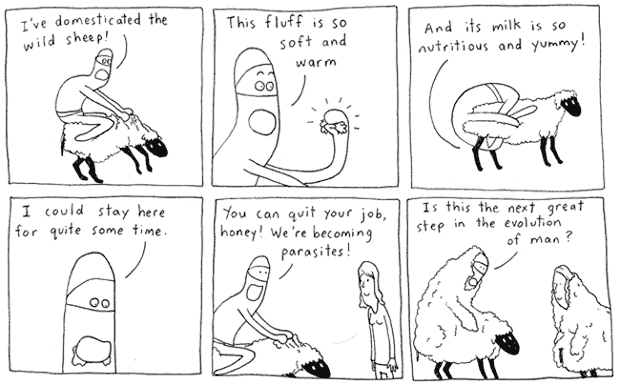 I've domesticated the
wild sheep!
This fluff is so
soft and
warm
And its milk is so
nutritious and yummy!
I could stay here
for quite some time.
You can quit your job,
honey! We're becoming
parasites!
Is this the next great
step in the evolution
of man?